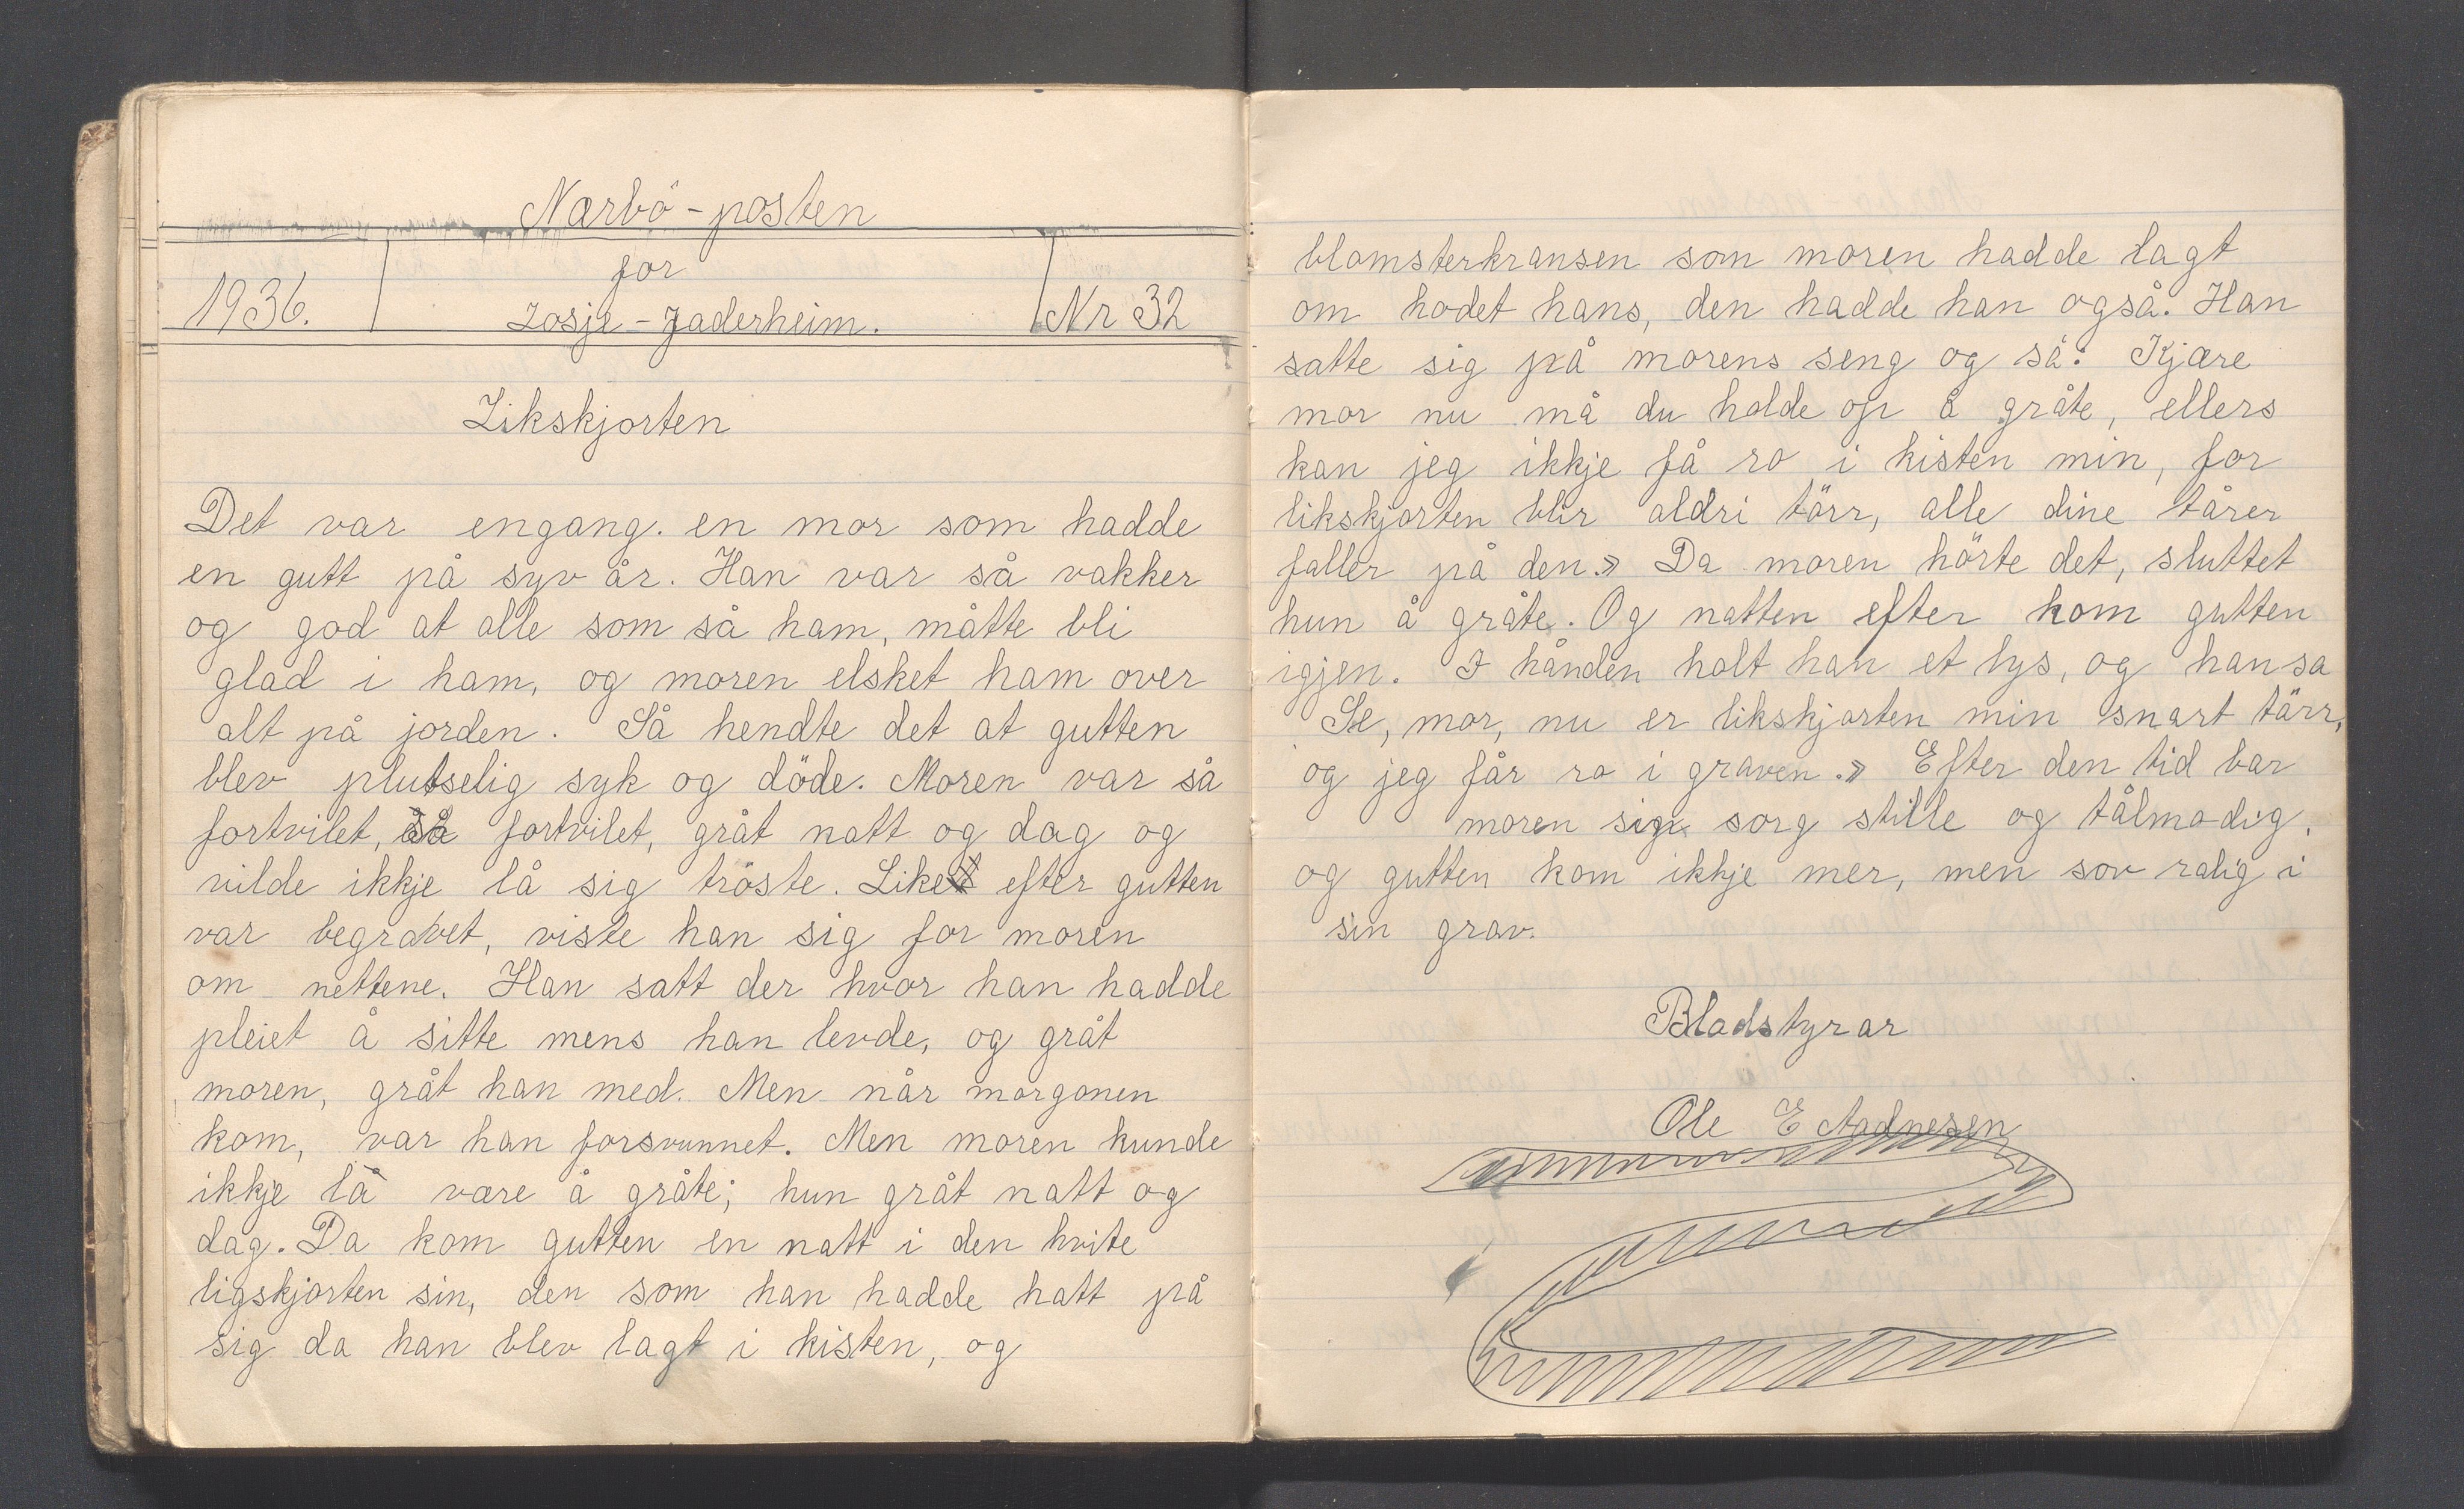 Nærbö-posten
for
1936. Losje-Jaderheim. Nr 32
Likskjorten
Det var engang. en mor som hadde
en gutt på syv år. Han var så vakker
og god at alle som så ham, måtte bli
glad i ham, og moren elsket ham over
alt på jorden. Så hendte det at gutten
blev plutselig syk og döde. Moren var så
fortvilet, så fortvilet, gråt natt og dag og
vilde ikkje lå sig tröste. Like efter gutten
var begravet, viste han sig for moren
om nettene. Han satt der hvor han hadde
pleiet å sitte mens han levde, og gråt
moren, gråt han med. Men når morgonen
kom, var han forsvunnet. Men moren kunde
ikkje lå være å gråte; hun gråt natt og
dag. Da kom gutten en natt i den hvite
ligskjorten sin, den som han hadde hatt på
sig da han blev lagt i kisten, og
blomsterkransen som moren hadde lagt
om hodet hans, den hadde han også. Han
satte sig på morens seng og så: Kjære
mor nu må du holde op å gråte, ellers
kan jeg ikkje få ro i kisten min, for
likskjorten blir aldri törr, alle dine tårer
faller på den.» Da moren hörte det, sluttet
hun å gråte. Og natten efter kom gutten
igjen. I hånden holt han et lys, og han sa
Se, mor, nu er likskjorten min snart törr,
og jeg får ro i graven.» Efter den tid bar
moren sin sorg stille og tålmodig,
og gutten kom ikkje mer, men sov rolig i
sin grav.
Bladstyrar
Ole E Aadnesen